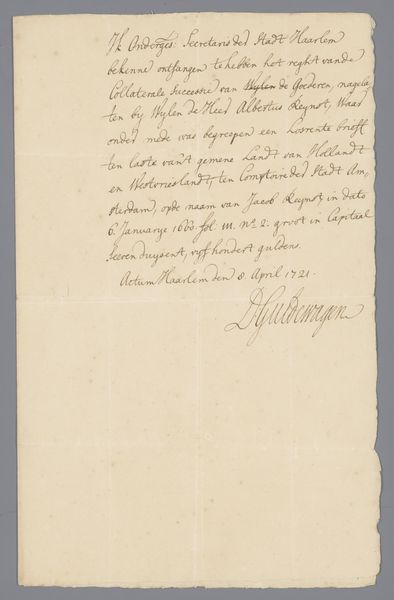 Ik Onderges: Secretaris der Stadt Haarlem
bekenne ontfangen te hebben het reght vande
Collaterale Successie van Wylen de Goederen, nagela,
ten by Wylen de Heer Albertus Reynst, Waar
onder mede was begreepen een Losrente brieff
ten laste van't gemene Landt van Hollandt
en Westvrieslandt, ten Comptoire der Stadt Am,
sterdam, opde naam van Jacob Reynst, in dato
6. Januarye 1660. fol. m. No. 2. groot in Capitaal
seeven duysent, vyf hondert guldens.
Actum Haarlem den 8. April 1721.
D Guldewagen